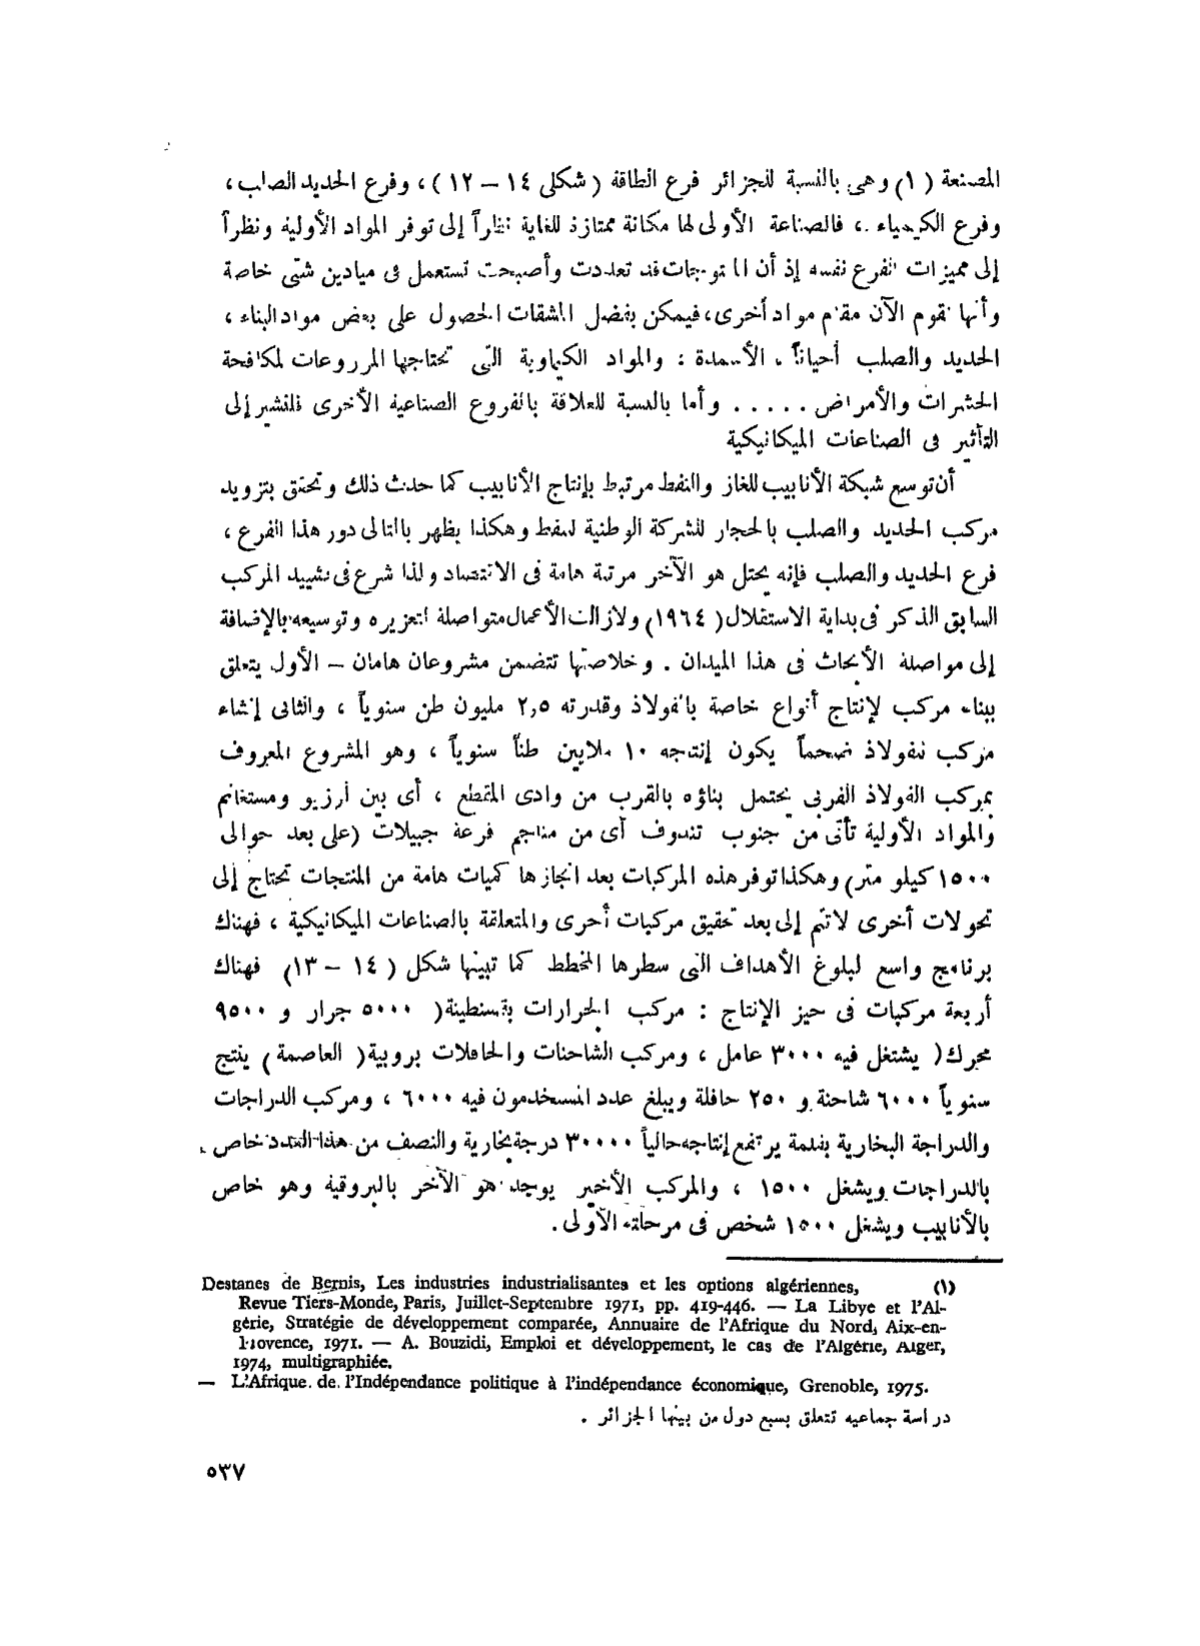 المصنعة (١) وهى بالنسبة للجزائر فرع الطاقة (شكلى ١٤ – ١٢)، وفرع الحديد الصلب،
وفرع الكيمياء، فالصناعة الأولى لها مكانة ممتازة للغاية نظراً إلى توفر المواد الأولية ونظراً
إلى مميزات الفرع نفسه إذ أن المنتوجات قد تعددت وأصبحت تستعمل فى ميادين شتى خاصة
وأنها تقوم الآن مقام مواد أخرى، فيمكن بفضل المشقات الحصول على بعض مواد البناء،
الحديد والصلب أحياناً، الأسمدة: والمواد الكياوية التى تحتاجها المزروعات لمكافحة
الحشرات والأمراض ..... وأما بالنسبة للعلاقة بالفروع الصناعية الأخرى فلنشير إلى
التأثير فى الصناعات الميكانيكية
أن توسع شبكة الأنابيب للغاز والنفط مرتبط بإنتاج الأنابيب كما حدث ذلك وتحقق بتزويد
مركب الحديد والصلب بالحجار للشركة الوطنية للنفط وهكذا يظهر بالتالى دور هذا الفرع،
فرع الحديد والصلب فإنه يحتل هو الآخر مرتبة هامة فى الاقتصاد ولذا شرع فى تشييد المركب
السابق الذكر فى بداية الاستقلال (١٩٦٤) ولازالت الأعمال متواصلة لتعزيزه وتوسيعه بالإضافة
إلى مواصلة الأبحاث فى هذا الميدان. وخلاصتها تتضمن مشروعان هامان – الأول يتعلق
ببناء مركب لإنتاج أنواع خاصة بالفولاذ وقدرته ٢,٥ مليون طن سنوياً، والثانى إنشاء
مركب للفولاذ ضخماً يكون إنتجه ١٠ ملايين طناً سنوياً، وهو المشروع المعروف
بمركب الفولاذ الغربى يحتمل بناؤه بالقرب من وادى المقطع، أى بين أرزيو ومستغانم
والمواد الأولية تأتى من جنوب تندوف أى من مناجم قرعة جبيلات (على بعد حوالى
١٥٠٠ كيلو متر) وهكذا توفر هذه المركبات بعد انجازها كميات هامة من المنتجات تحتاج إلى
تحولات أخرى لاتتم إلى بعد تحقيق مركبات أخرى والمتعلقة بالصناعات الميكانيكية، فهناك
برنامج واسع لبلوغ الأهداف التى سطرها المخطط كما تبينها شكل (١٤ – ١٣) فهناك
أربعة مركبات فى حيز الإنتاج: مركب الجرارات بقسنطينة( ٥٠٠٠ جرار و ٩٥٠٠
محرك( يشتغل فيه ٣٠٠٠ عامل، ومركب الشاحنات والحافلات بروبية( العاصمة) ينتج
سنوياً ٦٠٠٠ شاحنة و ٢٥٠ حافلة ويبلغ عدد المستخدمون فيه ٦٠٠٠، ومركب الدراجات
والدراجة البخارية بقلمة يرتفع إنتاجه حالياً ٣٠٠٠٠ درجة بخارية والنصف من هذا العدد خاص
بالدراجات ويشغل ١٥٠٠، والمركب الأخير يوجد هو الآخر بالبروقية وهو خاص
بالأنابيب ويشغل ١٥٠٠ شخص فى مرحلته الأولى.
Destanes de Bernis, Les industries industrialisantes et les options algériennes, (١)
Revue Tiers-Monde, Paris, Juillet-Septembre 1971, pp. 419-446. — La Libye et l'Al-
gérie, Stratégie de développement comparée, Annuaire de l'Afrique du Nord, Aix-en-
Provence, 1971. — A. Bouzidi, Emploi et développement, le cas de l'Algérie, Alger,
1974, multigraphiée.
— L'Afrique de l'Indépendance politique à l'indépendance économique, Grenoble, 1975.
دراسة جماعية تتعلق بسبع دول من بينها الجزائر.
٥٣٧